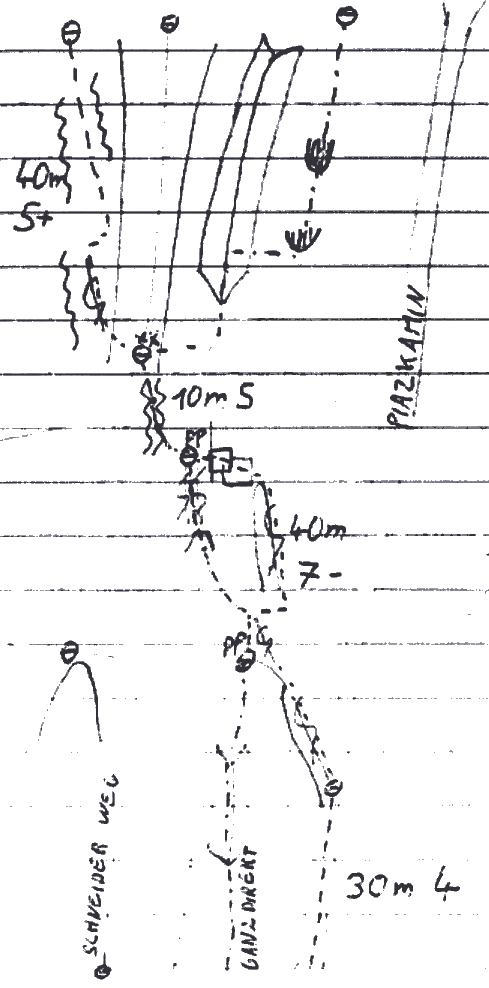 40m
5+
PIAZKAMIN
10m 5
PP
40m
7-
PP
SCHNEIDER WEG
GANZ DIREKT
30m 4